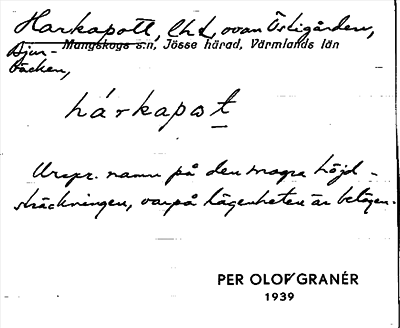 Harkapott, lhd, ovan Östigården,
Djur-
bäcken,
Mangskogs s:n, Jösse härad, Värmlands län
hárkapot
Urspr. namn på den magra höjd-
sträckningen, varpå lägenheten är belägen.
PER OLOF GRANÉR
1939